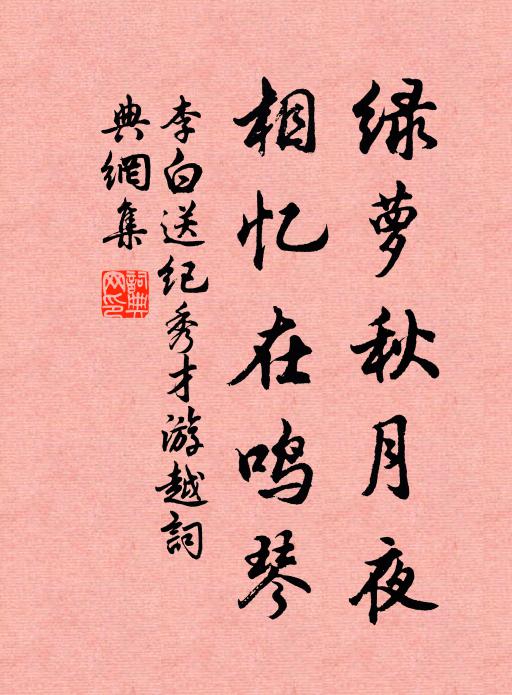 绿萝秋月夜
相忆在鸣琴
李白送纪秀才游越詞
典網集
詞典
网印